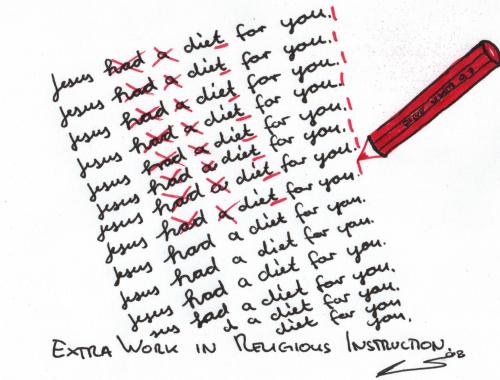 Jesus had a diet for you.
Jesus had a diet for you.
Jesus had a diet for you.
Jesus had a diet for you.
Jesus had a diet for you.
Jesus had a diet for you.
Jesus had a diet for you.
Jesus had a diet for you.
Jesus had a diet for you.
Jesus had a diet for you.
Jesus had a diet for you.
sus had a diet for you.
d a diet for you.
diet for you
you.
EXTRA WORK IN RELIGIOUS INSTRUCTION.
08